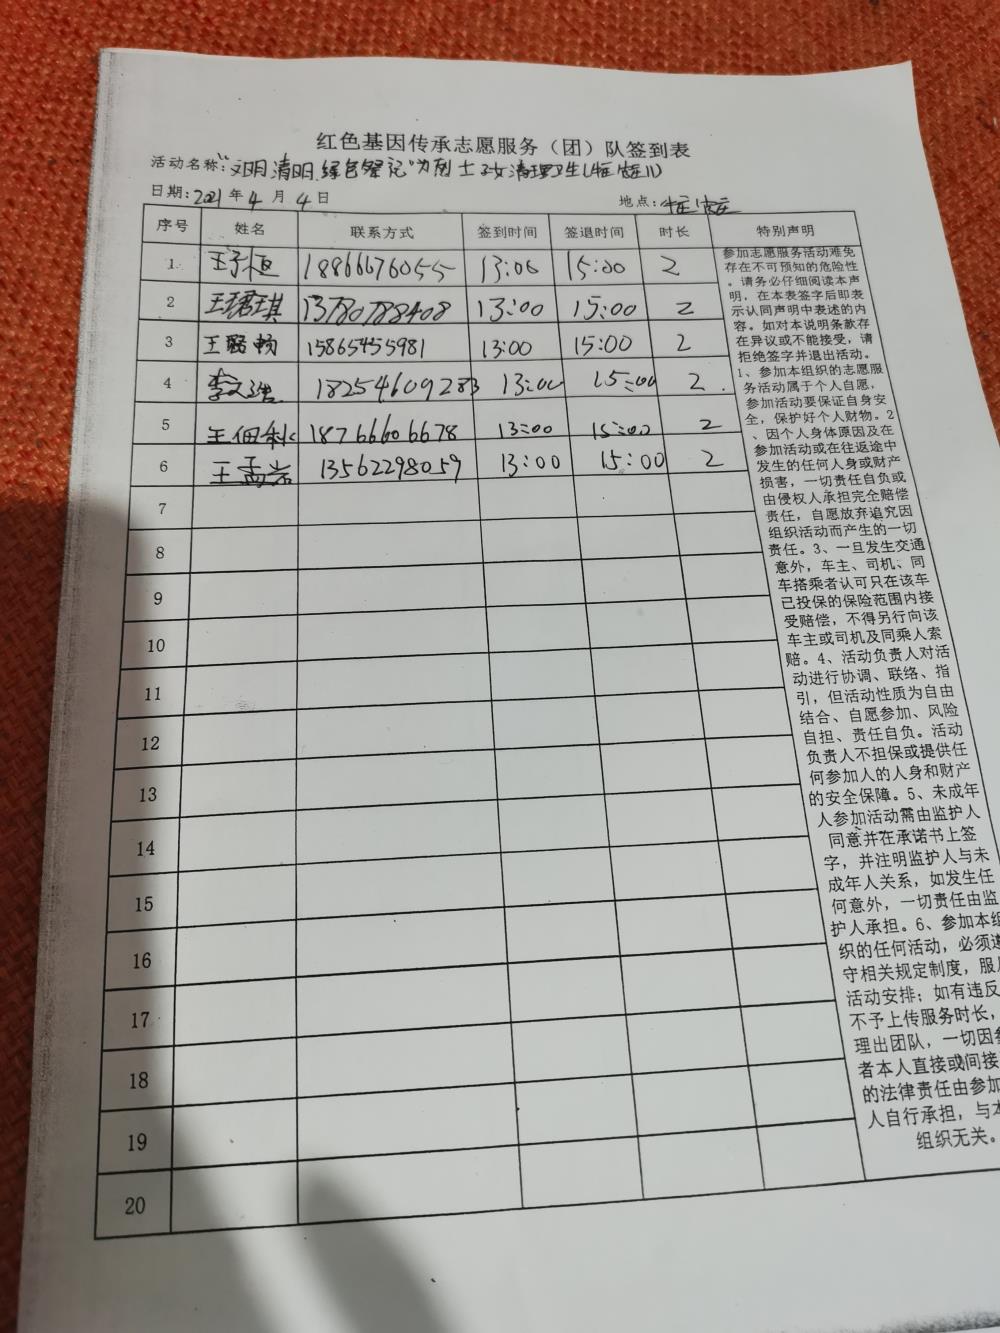 红色基因传承志愿服务（团）队签到表
活动名称："文明清明.绿色祭祀"为烈士墓清理卫生
日期：2021年4月4日 地点：
序号 姓名 联系方式 签到时间 签退时间 时长 特别声明
1 王子恒 18866676055 13:00 15:00 2
2 王珺琪 13780788408 13:00 15:00 2
3 王璐畅 15865455981 13:00 15:00 2
4 李文浩 18254609283 13:00 15:00 2
5 王佃秋 18766606678 13:00 15:00 2
6 王孟岩 13562298059 13:00 15:00 2
7
8
9
10
11
12
13
14
15
16
17
18
19
20
参加志愿服务活动难免
存在不可预知的危险性
。请务必仔细阅读本声
明，在本表签字后即表
示认同声明中表述的内
容。如对本说明条款存
在异议或不能接受，请
拒绝签字并退出活动。
1、参加本组织的志愿服
务活动属于个人自愿，
参加活动要保证自身安
全，保护好个人财物。2
、因个人身体原因及在
参加活动或在往返途中
发生的任何人身或财产
损害，一切责任自负或
由侵权人承担完全赔偿
责任，自愿放弃追究因
组织活动而产生的一切
责任。3、一旦发生交通
意外，车主、司机、同
车搭乘者认可只在该车
已投保的保险范围内接
受赔偿，不得另行向该
车主或司机及同乘人索
赔。4、活动负责人对活
动进行协调、联络、指
引，但活动性质为自由
结合、自愿参加、风险
自担、责任自负。活动
负责人不担保或提供任
何参加人的人身和财产
的安全保障。5、未成年
人参加活动需由监护人
同意并在承诺书上签
字，并注明监护人与未
成年人关系，如发生任
何意外，一切责任由监
护人承担。6、参加本组
织的任何活动，必须遵
守相关规定制度，服从
活动安排；如有违反
不予上传服务时长，
理出团队，一切因参
者本人直接或间接
的法律责任由参加
人自行承担，与本
组织无关。